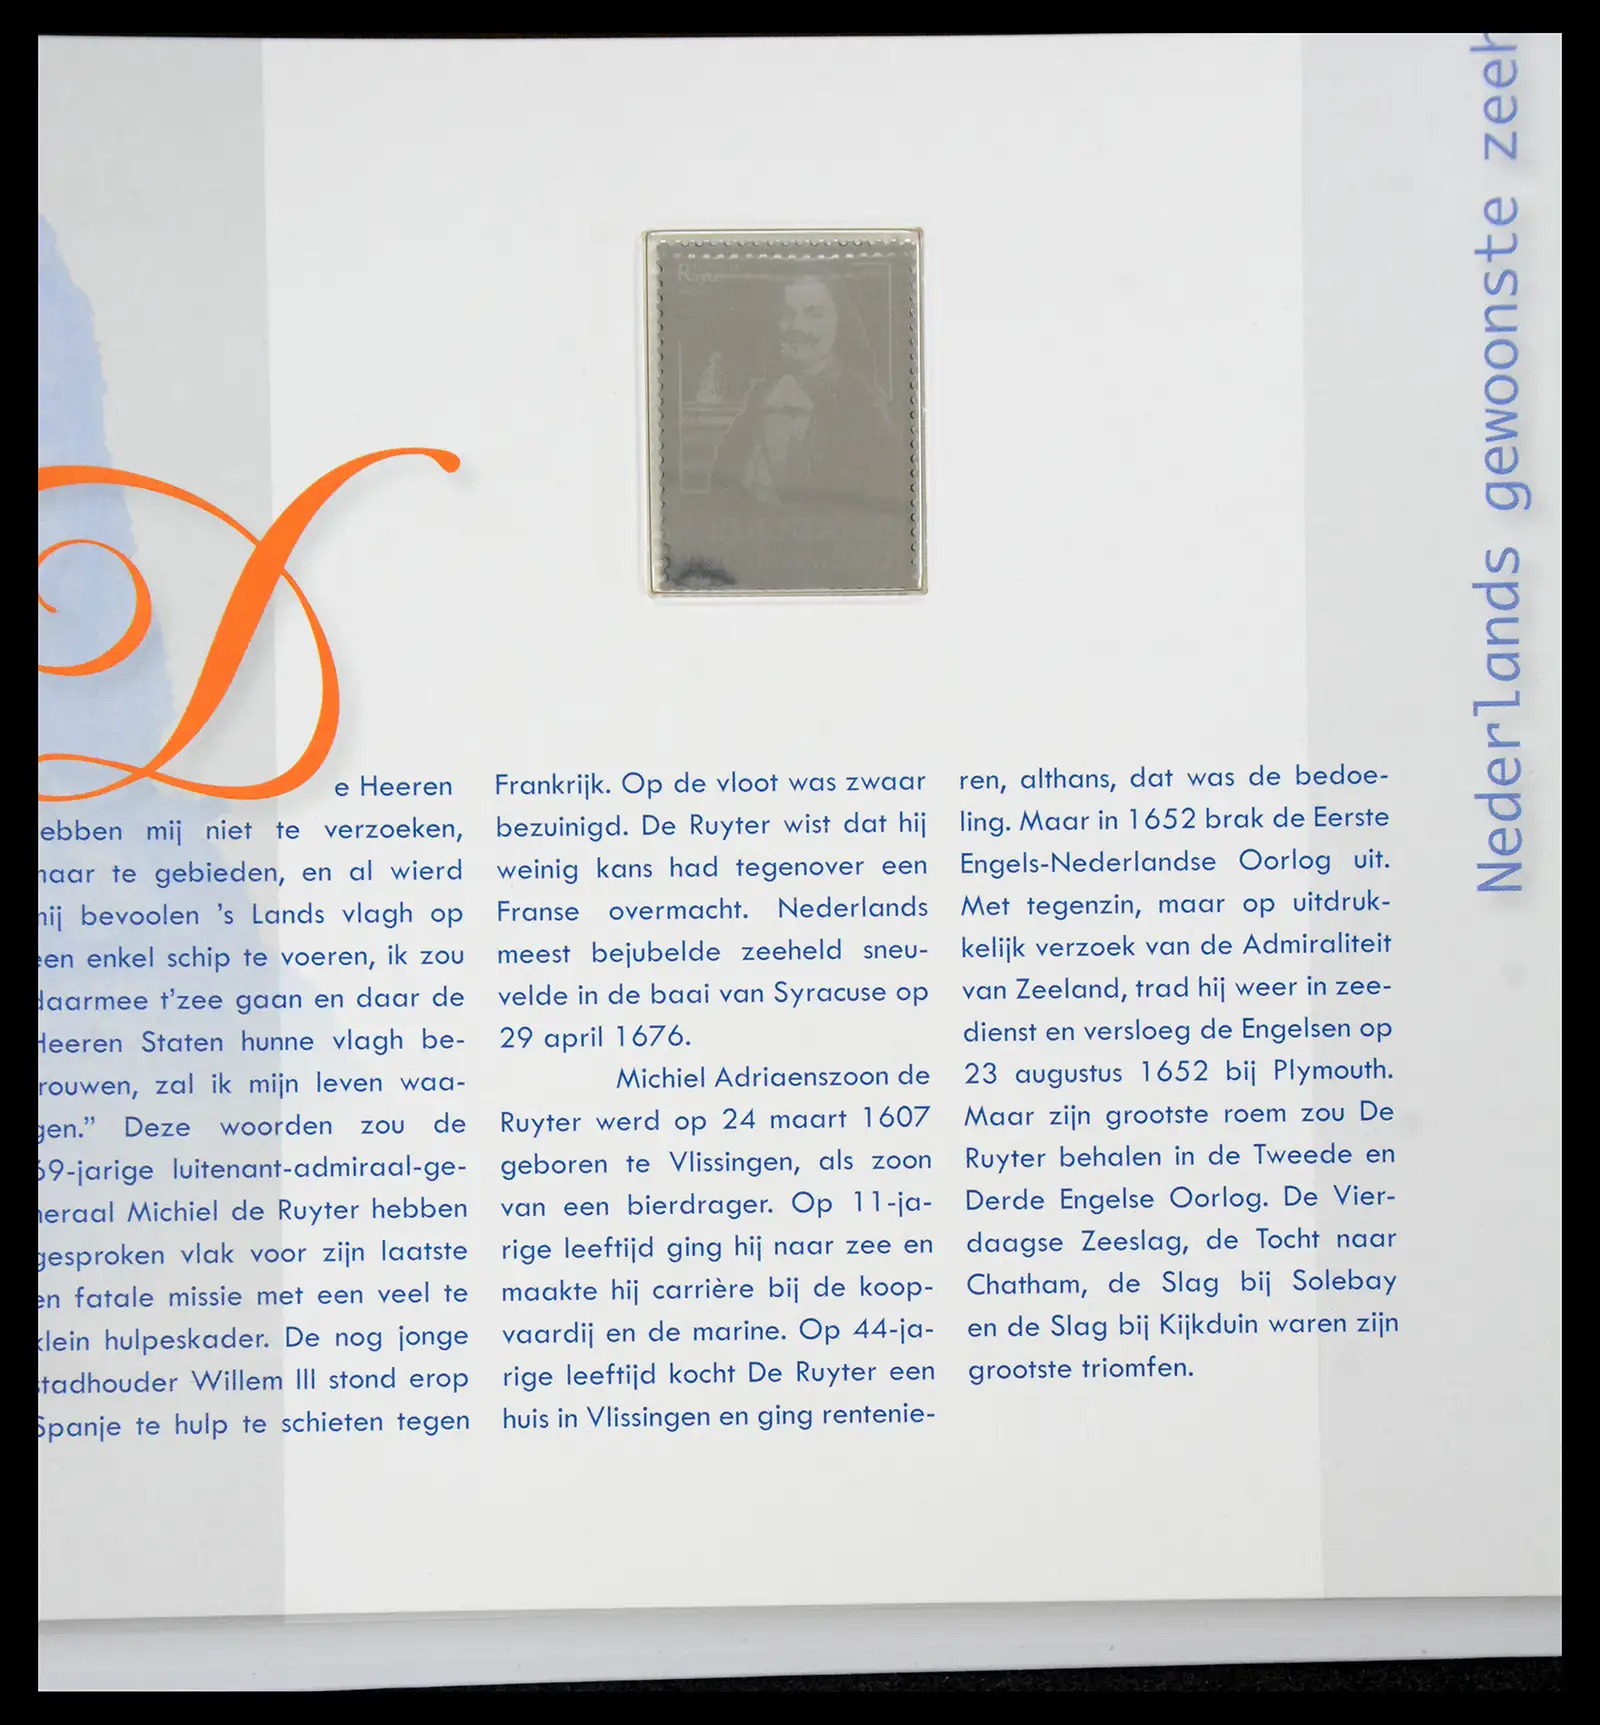 Ruyter
D
e Heeren
ebben mij niet te verzoeken,
aar te gebieden, en al wierd
ij bevoolen 's Lands vlagh op
en enkel schip te voeren, ik zou
daarmee t'zee gaan en daar de
Heeren Staten hunne vlagh be-
rouwen, zal ik mijn leven waa-
gen.” Deze woorden zou de
69-jarige luitenant-admiraal-ge-
neraal Michiel de Ruyter hebben
gesproken vlak voor zijn laatste
en fatale missie met een veel te
klein hulpeskader. De nog jonge
stadhouder Willem III stond erop
Spanje te hulp te schieten tegen
Frankrijk. Op de vloot was zwaar
bezuinigd. De Ruyter wist dat hij
weinig kans had tegenover een
Franse overmacht. Nederlands
meest bejubelde zeeheld sneu-
velde in de baai van Syracuse op
29 april 1676.
Michiel Adriaenszoon de
Ruyter werd op 24 maart 1607
geboren te Vlissingen, als zoon
van een bierdrager. Op 11-ja-
rige leeftijd ging hij naar zee en
maakte hij carrière bij de koop-
vaardij en de marine. Op 44-ja-
rige leeftijd kocht De Ruyter een
huis in Vlissingen en ging rentenie-
ren, althans, dat was de bedoe-
ling. Maar in 1652 brak de Eerste
Engels-Nederlandse Oorlog uit.
Met tegenzin, maar op uitdruk-
kelijk verzoek van de Admiraliteit
van Zeeland, trad hij weer in zee-
dienst en versloeg de Engelsen op
23 augustus 1652 bij Plymouth.
Maar zijn grootste roem zou De
Ruyter behalen in de Tweede en
Derde Engelse Oorlog. De Vier-
daagse Zeeslag, de Tocht naar
Chatham, de Slag bij Solebay
en de Slag bij Kijkduin waren zijn
grootste triomfen.
Nederlands gewoonste zeer